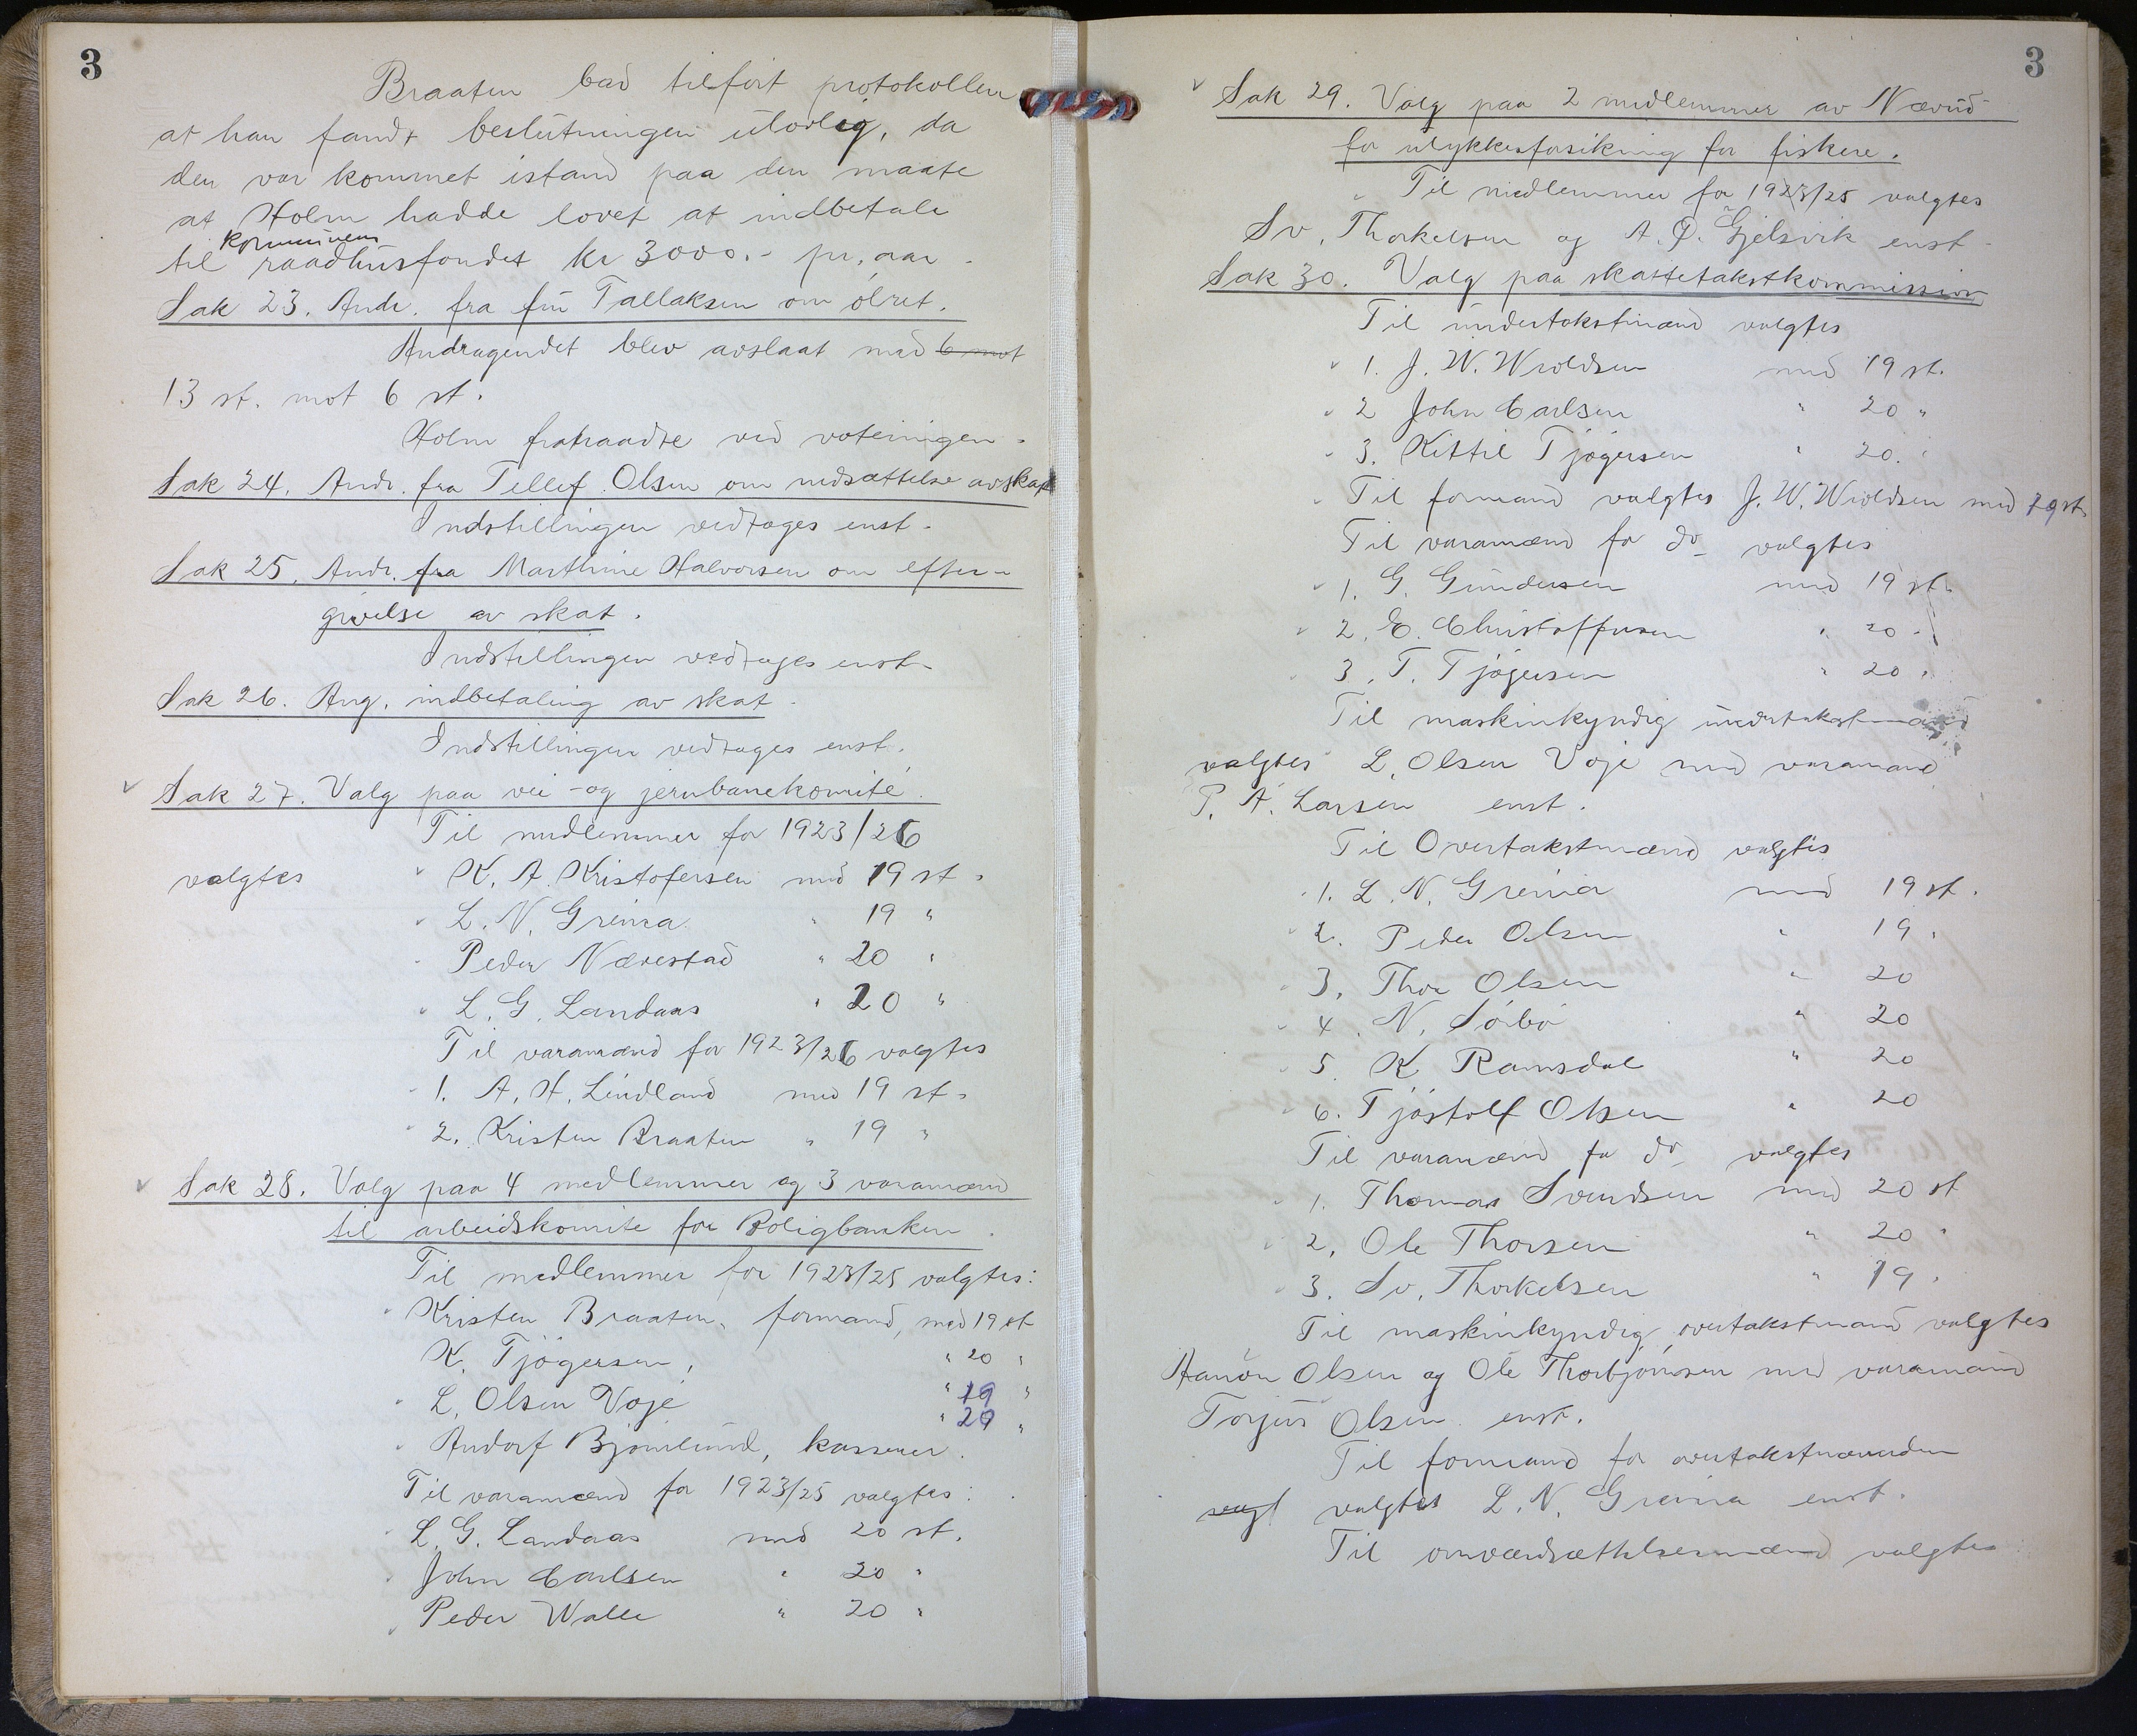 3
Braaten bad tilført protokollen
at han fandt beslutningen ulovlig, da
den var kommet istand paa den maate
at Holm hadde lovet at indbetale
kommunens
til raadhusfondet kr 3000.- pr. aar.
Sak 23. Andr. fra frú Tallaksen om ölret.
Andragendet blev avslaat med 6 mot
13 st. mot 6 st.
Holm fratraadte ved voteringen.
Sak 24. Andr. fra Tellef Olsen om nedsættelse av skat
Indstillingen vedtages enst.
Sak 25. Andr. fra Marthine Halvorsen om efter-
givelse av skat.
Indstillingen vedtages enst.
Sak 26. Ang. indbetaling av skat.
Indstillingen vedtages enst.
Sak 27. Valg paa vei- og jernbanekomité.
Til medlemmer for 1923/26
valgtes K. A. Kristofersen med 19 st.
L. N. Greiva " 19 "
Peder Nævestad " 20 "
L. G. Landaas " 20 "
Til varamænd for 1923/26 valgtes
1. A. H. Lindland med 19 st.
2. Kristen Braaten " 19 "
Sak 28. Valg paa 4 medlemmer og 3 varamænd
til arbeidskomite for Boligbanken.
Til medlemmer for 1923/25 valgtes:
Kristen Braaten, formand, med 19 st
K. Tjögersen, " 20 "
L. Olsen Voje " 19 "
" 20 "
Andorf Bjornlund, kasserer.
Til varamænd for 1923/25 valgtes:
L. G. Landaas med 20 st.
John Carlsen " 20 "
Peder Walle " 20 "
3
Sak 29. Valg paa 2 medlemmer av Nævnd
for ulykkesforsikring for fiskere.
Til medlemmer for 1923/25 valgtes
Sv. Thorkelsen og A. O. Gjelsvik enst.
Sak 30. Valg paa skattetakstkommission
Til undertakstmænd valgtes
1. J. W. Wroldsen med 19 st.
2 John Carlsen " 20 "
3. Kittil Tjögersen " 20. "
Til formand valgtes J. W. Wroldsen med 19 st.
Til varamænd for do valgtes
1. G. Gundersen med 19 st.
2. E. Christoffersen " 20 "
3. T. Tjögersen " 20 "
Til maskinkyndig undertakstmand
valgtes L. Olsen Voje med varamand
P. A. Larsen enst.
Til Overtakstmænd valgtes
1. L. N. Greiva med 19 st.
2. Peder Olsen " 19 "
3. Thor Olsen " 20
4. N. Sörbö " 20
5. K. Ramsdal " 20
6. Tjöstolf Olsen " 20
Til varamænd for do valgtes
1. Thomas Svendsen med 20 st
2. Ole Thorsen " 20 "
3. Sv. Thorkelsen " 19 "
Til maskinkyndig overtakstmand valgtes
Hanön Olsen og Ole Thorbjörnsen med varamand
Torjus Olsen enst.
Til formand for overtakstnævnden
valgt valgtes L. N. Greiva enst.
Til omværdsættelsesmænd valgtes